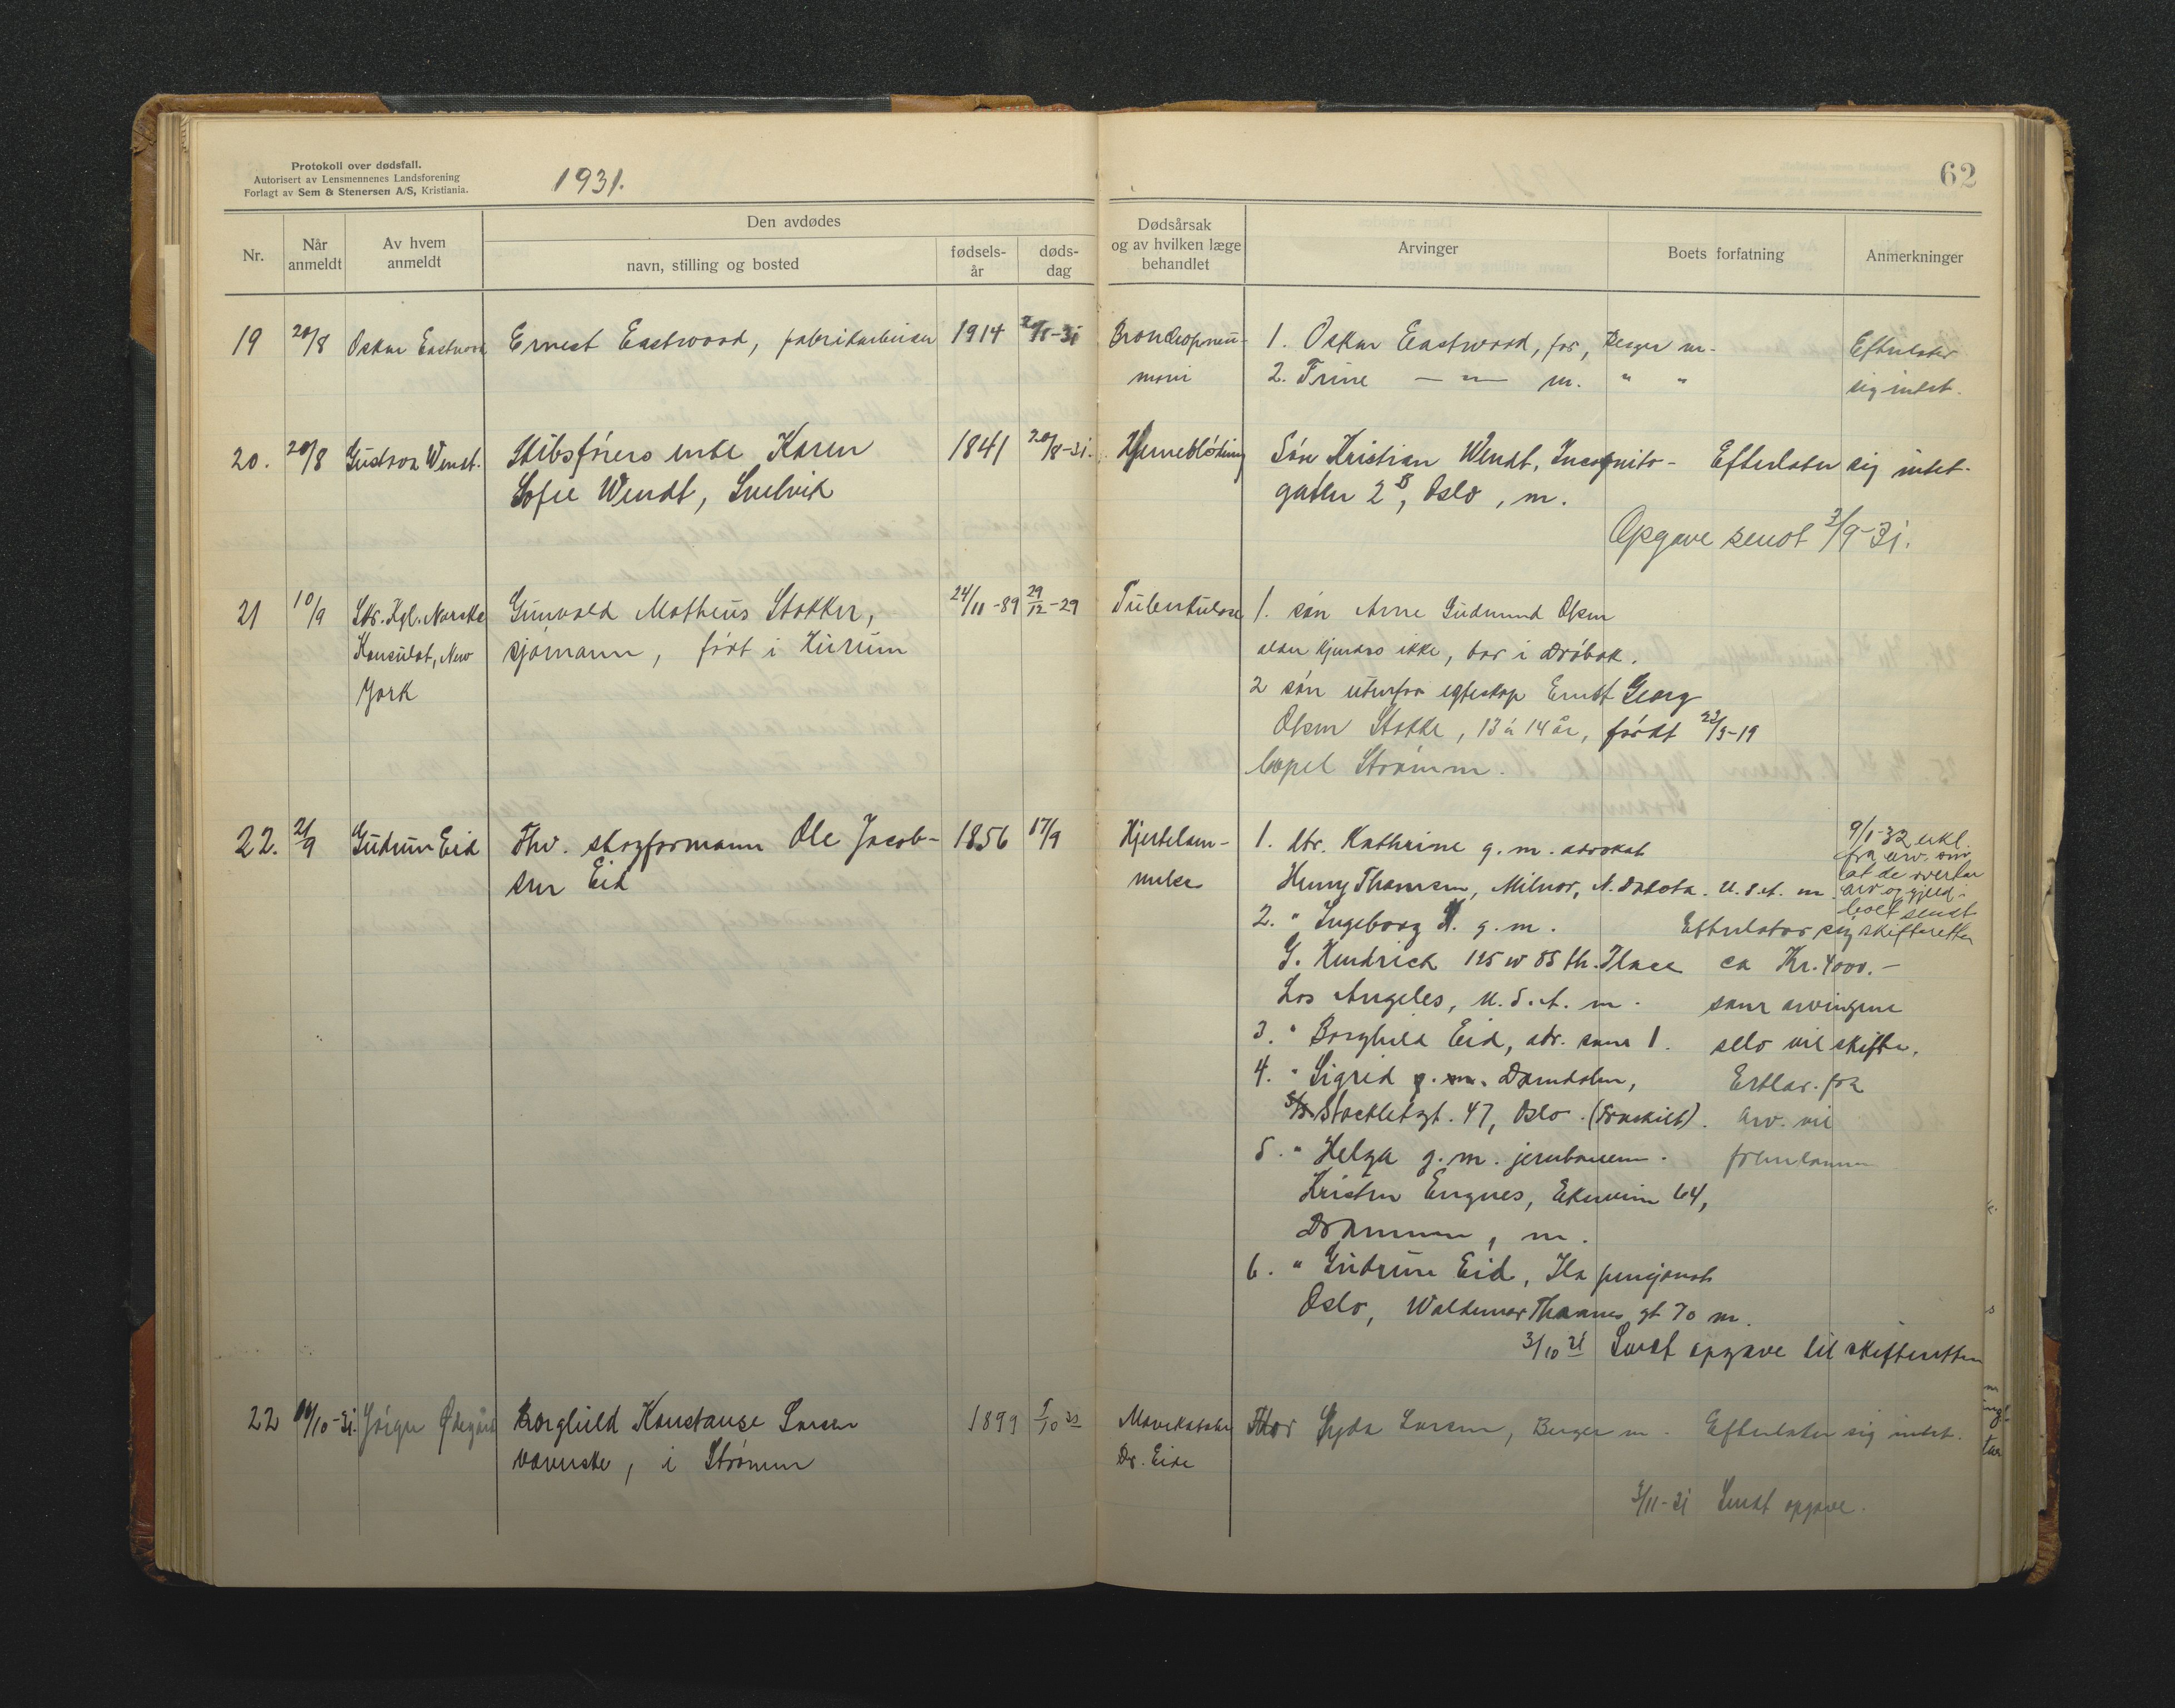 Protokoll over dødsfall.
Autorisert av Lensmennenes Landsforening
Forlagt av Sem & Stenersen A/S, Kristiania.
1931.
62
Nr.
Når anmeldt
Av hvem anmeldt
Den avdødes
navn, stilling og bosted
fødsels-år
døds-dag
Dødsårsak og av hvilken læge behandlet
Arvinger
Boets forfatning
Anmerkninger
19 20/8 Oskar Eastwood Ernest Eastwood, fabrikarbeider 1914 Bronchopneu- 1. Oskar Eastwood, far, Berger m. Efterlater
moni 2. Trine — " — m. " " sig intet.
20. 20/8 Gustava Wendt. Skibsførers enke Karen 1841 20/8-31. Hjerneblødning Søn Kristian Wendt, Incognito- Efterlater sig intet.
Sofie Wendt, Svelvik gaten 2 B, Oslo, m.
Opgave sendt 3/9-31.
21 10/9 Kgl. Norske Gunvald Matheus Stokker, 24/11-89 29/12-29 Tuberkulose 1. søn Arne Gudmund Olsen
Konsulat, New sjømann, født i Hurum alder kjendes ikke, bor i Drøbak.
York 2 søn utenfor egteskap Ernst Georg
Olsen Stokke, 13 à 14 år, født 22/3-19
Strømm.
22. 21/9 Gudrun Eid Fhv. skogformann Ole Jacob- 1856 17/9 Hjertelam- 1. dtr. Kathrine g. m. advokat
sen Eid melse Henry Thomsen, Milnor, N. Dakota. U.S.A. m.
9/1-32 erkl.
fra arv. om
at de overtar
arv og gjeld.
sendt
skifteretten
2. " Ingeborg g. m. Efterlater sig
G. Kendrick 125 W 85 th. Place ca Kr. 4000.-
Los Angeles, U.S.A. m. som arvingene
3. " Borghild Eid, adr. som 1. selv vil skifte.
4. " Sigrid g. m. Damdalen, Erklær. fra
Stockfletgt. 47, Oslo. (Fraskilt). arv. vil
5. " Helga g. m. jernbanem. fremkomme
Kristen Engnes, Ekerveien 64,
Drammen, m.
6. " Gudrun Eid, Ila pensjonat
Oslo, Waldemar Thranes gt 70 m.
3/10 31 Sendt opgave til skifteretten
22 10/10-31. Jörgen Ødegård Borghild Konstanse Larsen 1899 5/10 31 Mavekatarr Mor Gyda Larsen, Berger m. Efterlater sig intet.
væverske, i Strømm Dr. Eide
3/11-31 Sendt opgave.